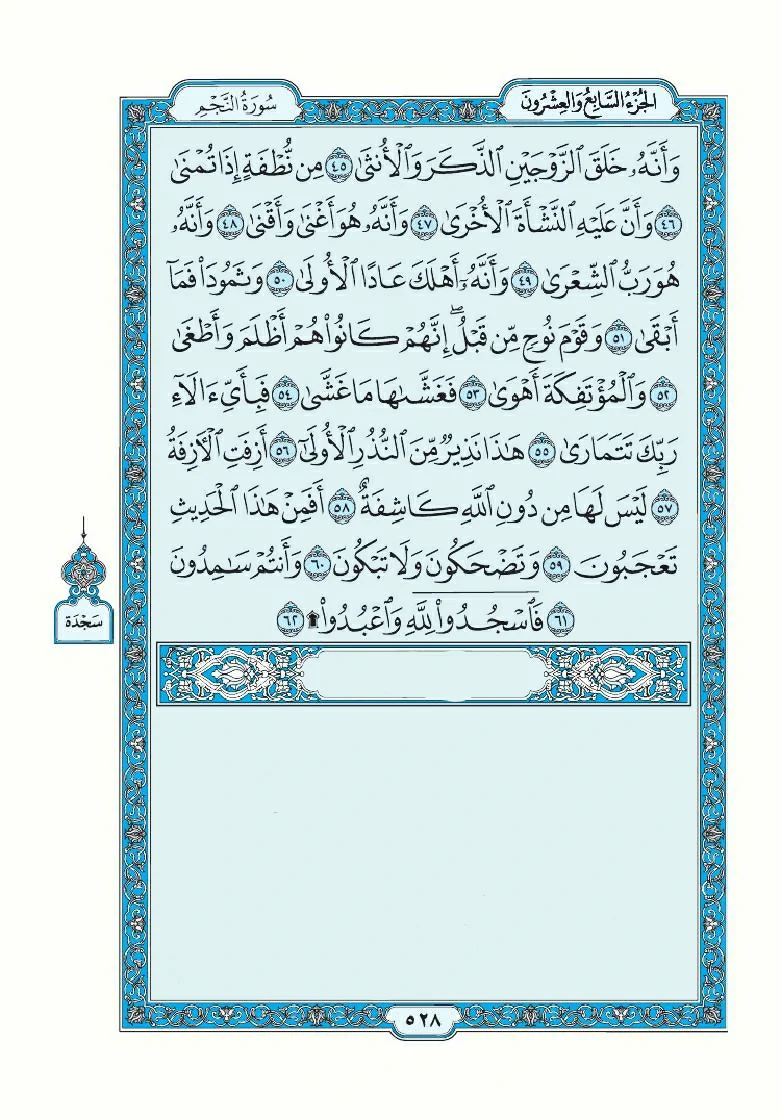 الجُزْءُ السَّابِعُ وَالعِشْرُونَ
سُورَةُ النَّجْمِ
وَأَنَّهُۥ خَلَقَ ٱلزَّوْجَيْنِ ٱلذَّكَرَ وَٱلْأُنثَىٰ ٤٥ مِن نُّطْفَةٍ إِذَا تُمْنَىٰ
٤٦ وَأَنَّ عَلَيْهِ ٱلنَّشْأَةَ ٱلْأُخْرَىٰ ٤٧ وَأَنَّهُۥ هُوَ أَغْنَىٰ وَأَقْنَىٰ ٤٨ وَأَنَّهُۥ
هُوَ رَبُّ ٱلشِّعْرَىٰ ٤٩ وَأَنَّهُۥٓ أَهْلَكَ عَادًا ٱلْأُولَىٰ ٥٠ وَثَمُودَا۟ فَمَآ
أَبْقَىٰ ٥١ وَقَوْمَ نُوحٍ مِّن قَبْلُ ۖ إِنَّهُمْ كَانُوا۟ هُمْ أَظْلَمَ وَأَطْغَىٰ
٥٢ وَٱلْمُؤْتَفِكَةَ أَهْوَىٰ ٥٣ فَغَشَّىٰهَا مَا غَشَّىٰ ٥٤ فَبِأَىِّ ءَالَآءِ
رَبِّكَ تَتَمَارَىٰ ٥٥ هَٰذَا نَذِيرٌ مِّنَ ٱلنُّذُرِ ٱلْأُولَىٰٓ ٥٦ أَزِفَتِ ٱلْءَازِفَةُ
٥٧ لَيْسَ لَهَا مِن دُونِ ٱللَّهِ كَاشِفَةٌ ٥٨ أَفَمِنْ هَٰذَا ٱلْحَدِيثِ
تَعْجَبُونَ ٥٩ وَتَضْحَكُونَ وَلَا تَبْكُونَ ٦٠ وَأَنتُمْ سَٰمِدُونَ
٦١ فَٱسْجُدُوا۟ لِلَّهِ وَٱعْبُدُوا۟ ۩ ٦٢
سَجْدَة
٥٢٨